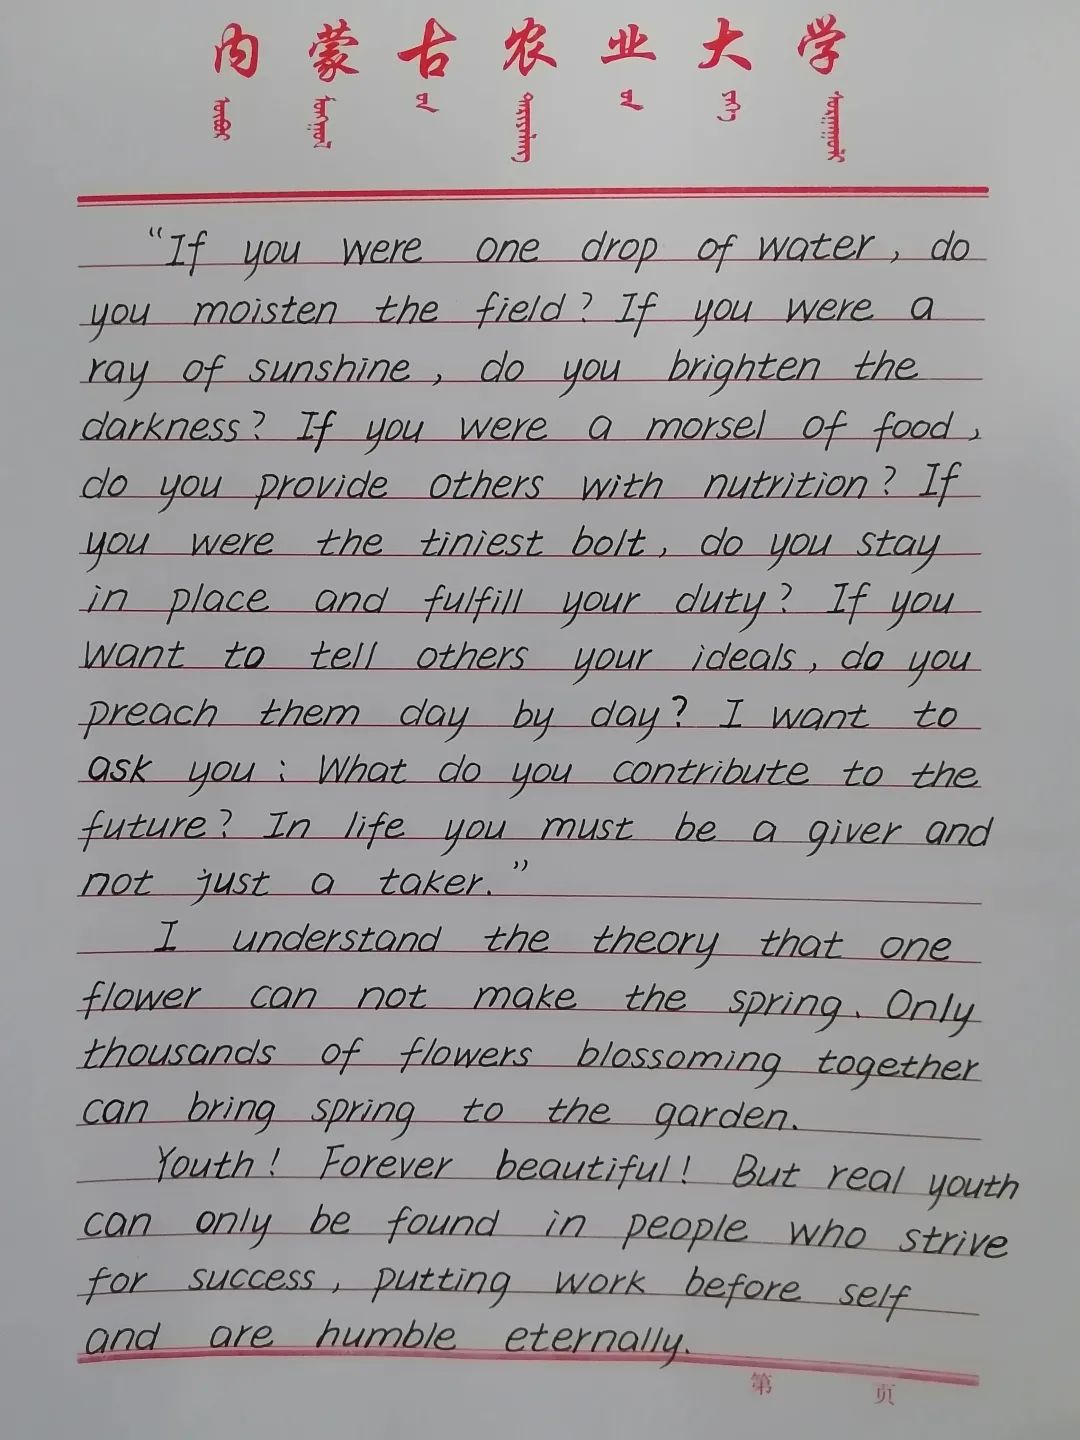 内蒙古农业大学
“If you were one drop of water, do
you moisten the field? If you were a
ray of sunshine, do you brighten the
darkness? If you were a morsel of food,
do you provide others with nutrition? If
you were the tiniest bolt, do you stay
in place and fulfill your duty? If you
want to tell others your ideals, do you
preach them day by day? I want to
ask you: What do you contribute to the
future? In life you must be a giver and
not just a taker.”
I understand the theory that one
flower can not make the spring. Only
thousands of flowers blossoming together
can bring spring to the garden.
Youth! Forever beautiful! But real youth
can only be found in people who strive
for success, putting work before self
and are humble eternally.
第 页